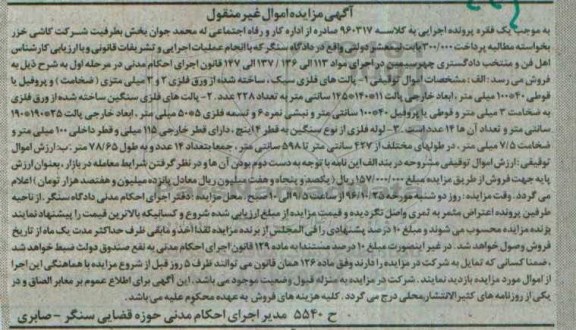 آگهی مزایده اموال غیر منقول
به موجب یک فقره پرونده اجرایی به کلاسه ۹۶۰۳۱۷ صادره از اداره کار و رفاه اجتماعی له محمد جوان بخش بطرفیت شرکت کاشی خزر
بخواسته مطالبه پرداخت ۳۰۰/۰۰۰ بابت نیمعشر دولتی واقع در دادگاه سنگر که با انجام عملیات اجرایی و تشریفات قانونی و با ارزیابی کارشناس
اهل فن و منتخب دادگستری چهر در اجرای مواد ۱۱۳ الی ۱۳۶ / ۱۳۷ الی ۱۴۷ قانون اجرای احکام مدنی در مرحله اول به شرح ذیل به
فروش می رسد : الف : مشخصات اموال توقیفی ۱- پالت های فلزی سبک ، ساخته شده از ورق فلزی ۲ و ۳ میلی متری ( ضخامت ) و پروفیل یا
قوطی ۴۰*۱۰۰ میلی متر ، ابعاد خارجی پالت ۱۱*۱۴۰*۱۴۵ سانتی متر به تعداد ۲۲۸ عدد . ۲- پالت های فلزی سنگین ساخته شده از ورق فلزی
به ضخامت ۳ میلی متر و قوطی یا پروفیل ۴۰*۱۰۰ سانتی متر و نبشی نمره ۶ و تسمه فلزی ۵*۵۰ میلی متر ، ابعاد خارجی پالت ۲۵*۱۹۰*۱۹۰
سانتی متر و تعداد آن ها ۱۴ عدد است . ۳- لوله فلزی از نوع سنگین به قطر ۴ اینچ ، دارای قطر خارجی ۱۱۵ میلی و قطر داخلی ۱۰۰ میلی متر و
ضخامت ۷/۵ میلی متر ، در طولهای مختلف از ۴۲۷ سانتی متر تا ۵۹۸ سانتی متر ، جمعا بتعداد ۱۴ عدد و به طول ۷۸/۶۵ متر . ب: ارزش اموال
توقیفی : ارزش اموال توقیفی مشروحه در بند الف این نامه با توجه به دست دوم بودن آن ها و در نظر گرفتن شرایط معامله در بازار ، بعنوان ارزش
پایه جهت فروش از طریق مزایده مبلغ ۱۵۷/۰۰۰/۰۰۰ ریال ( یکصد و پنجاه و هفت میلیون ریال معادل پانزده میلیون و هفتصد هزار تومان ) اعلام
می گردد . وقت مزایده : روز دو شنبه مورخه ۹۶/۱۰/۲۵ از ساعت ۹/۵ الی ۱۰ صبح . محل مزایده : دفتر اجرای احکام مدنی دادگاه سنگر . از ناحیه
طرفین پرونده اعتراض مثمر به ثمری واصل نگردیده و قیمت مزایده از مبلغ ارزیابی شده شروع و کسانیکه بالاترین قیمت را پیشنهاد نمایند
برنده مزایده محسوب می شوند و مبلغ ۱۰ درصد پیشنهادی را فی المجلس از برنده مزایده نقدا اخذ و مابقی ظرف حداکثر مدت یک ماه از تاریخ
فروش وصول خواهد شد . در غیر اینصورت مبلغ ۱۰ درصد مستندا به ماده ۱۲۹ قانون اجرای احکام مدنی به نفع صندوق دولت ضبط خواهد شد
، ضمنا کسانی که تمایل به شرکت در مزایده را دارند وفق ماده ۱۲۶ همان قانون می توانند ظرف ۵ روز قبل از شروع مزایده با هماهنگی این اجرا
از اموال مورد مزایده بازدید نمایند . شرکت در مزایده به منزله قبول وضعیت موجود می باشد . این آگهی برای اطلاع عموم بر معابر الصاق و در
یکی از روزنامه های کثیر الانتشار محلی درج می گردد . کلیه هزینه های فروش به عهده محکوم علیه می باشد .
ح ۵۵۴۰ مدیر اجرای احکام مدنی حوزه قضایی سنگر - صابری